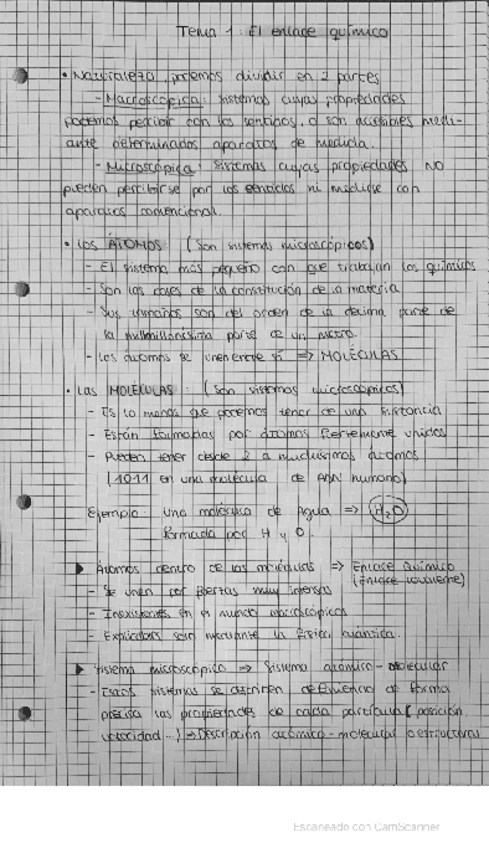 Tema 1: El enlace químico
• Naturaleza, podemos dividir en 2 partes
- Macroscópica: sistemas cuyas propiedades
podemos percibir con los sentidos, o son accesibles medi-
ante determinados aparatos de medida.
- Microscópica: sistemas cuyas propiedades NO
pueden percibirse por los sentidos ni medirse con
aparatos convencional.
• Los ÁTOMOS: (Son sistemas microscópicos)
- El sistema más pequeño con que trabajan los químicos
- Son las bases de la constitución de la materia
- Sus tamaños son del orden de la décima parte de
la milmillonésima parte de un metro.
- Los átomos se unen entre sí => MOLÉCULAS
• Las MOLÉCULAS: (Son sistemas microscópicos)
- Es lo menos que podemos tener de una sustancia
- Están formadas por átomos fuertemente unidos
- Pueden tener desde 2 a muchísimos átomos
(1011 en una molécula de ADN humano)
Ejemplo: una molécula de Agua => H2O
formada por H y O.
▶ Átomos dentro de las moléculas => Enlace Químico
(Enlace covalente)
- Se unen por fuerzas muy intensas
- Inexistentes en el mundo macroscópico
- Explicadas solo mediante la física cuántica.
▶ Sistema microscópico => Sistema atómico-molecular
- Estos sistemas se describen definiendo de forma
precisa las propiedades de cada partícula (posición,
velocidad...) => Descripción atómico-molecular o estructural
Escaneado con CamScanner